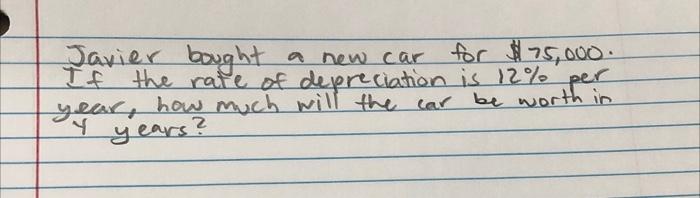 Javier bought a new car for $75,000.
If the rate of depreciation is 12% per
year, how much will the car be worth in
4 years?